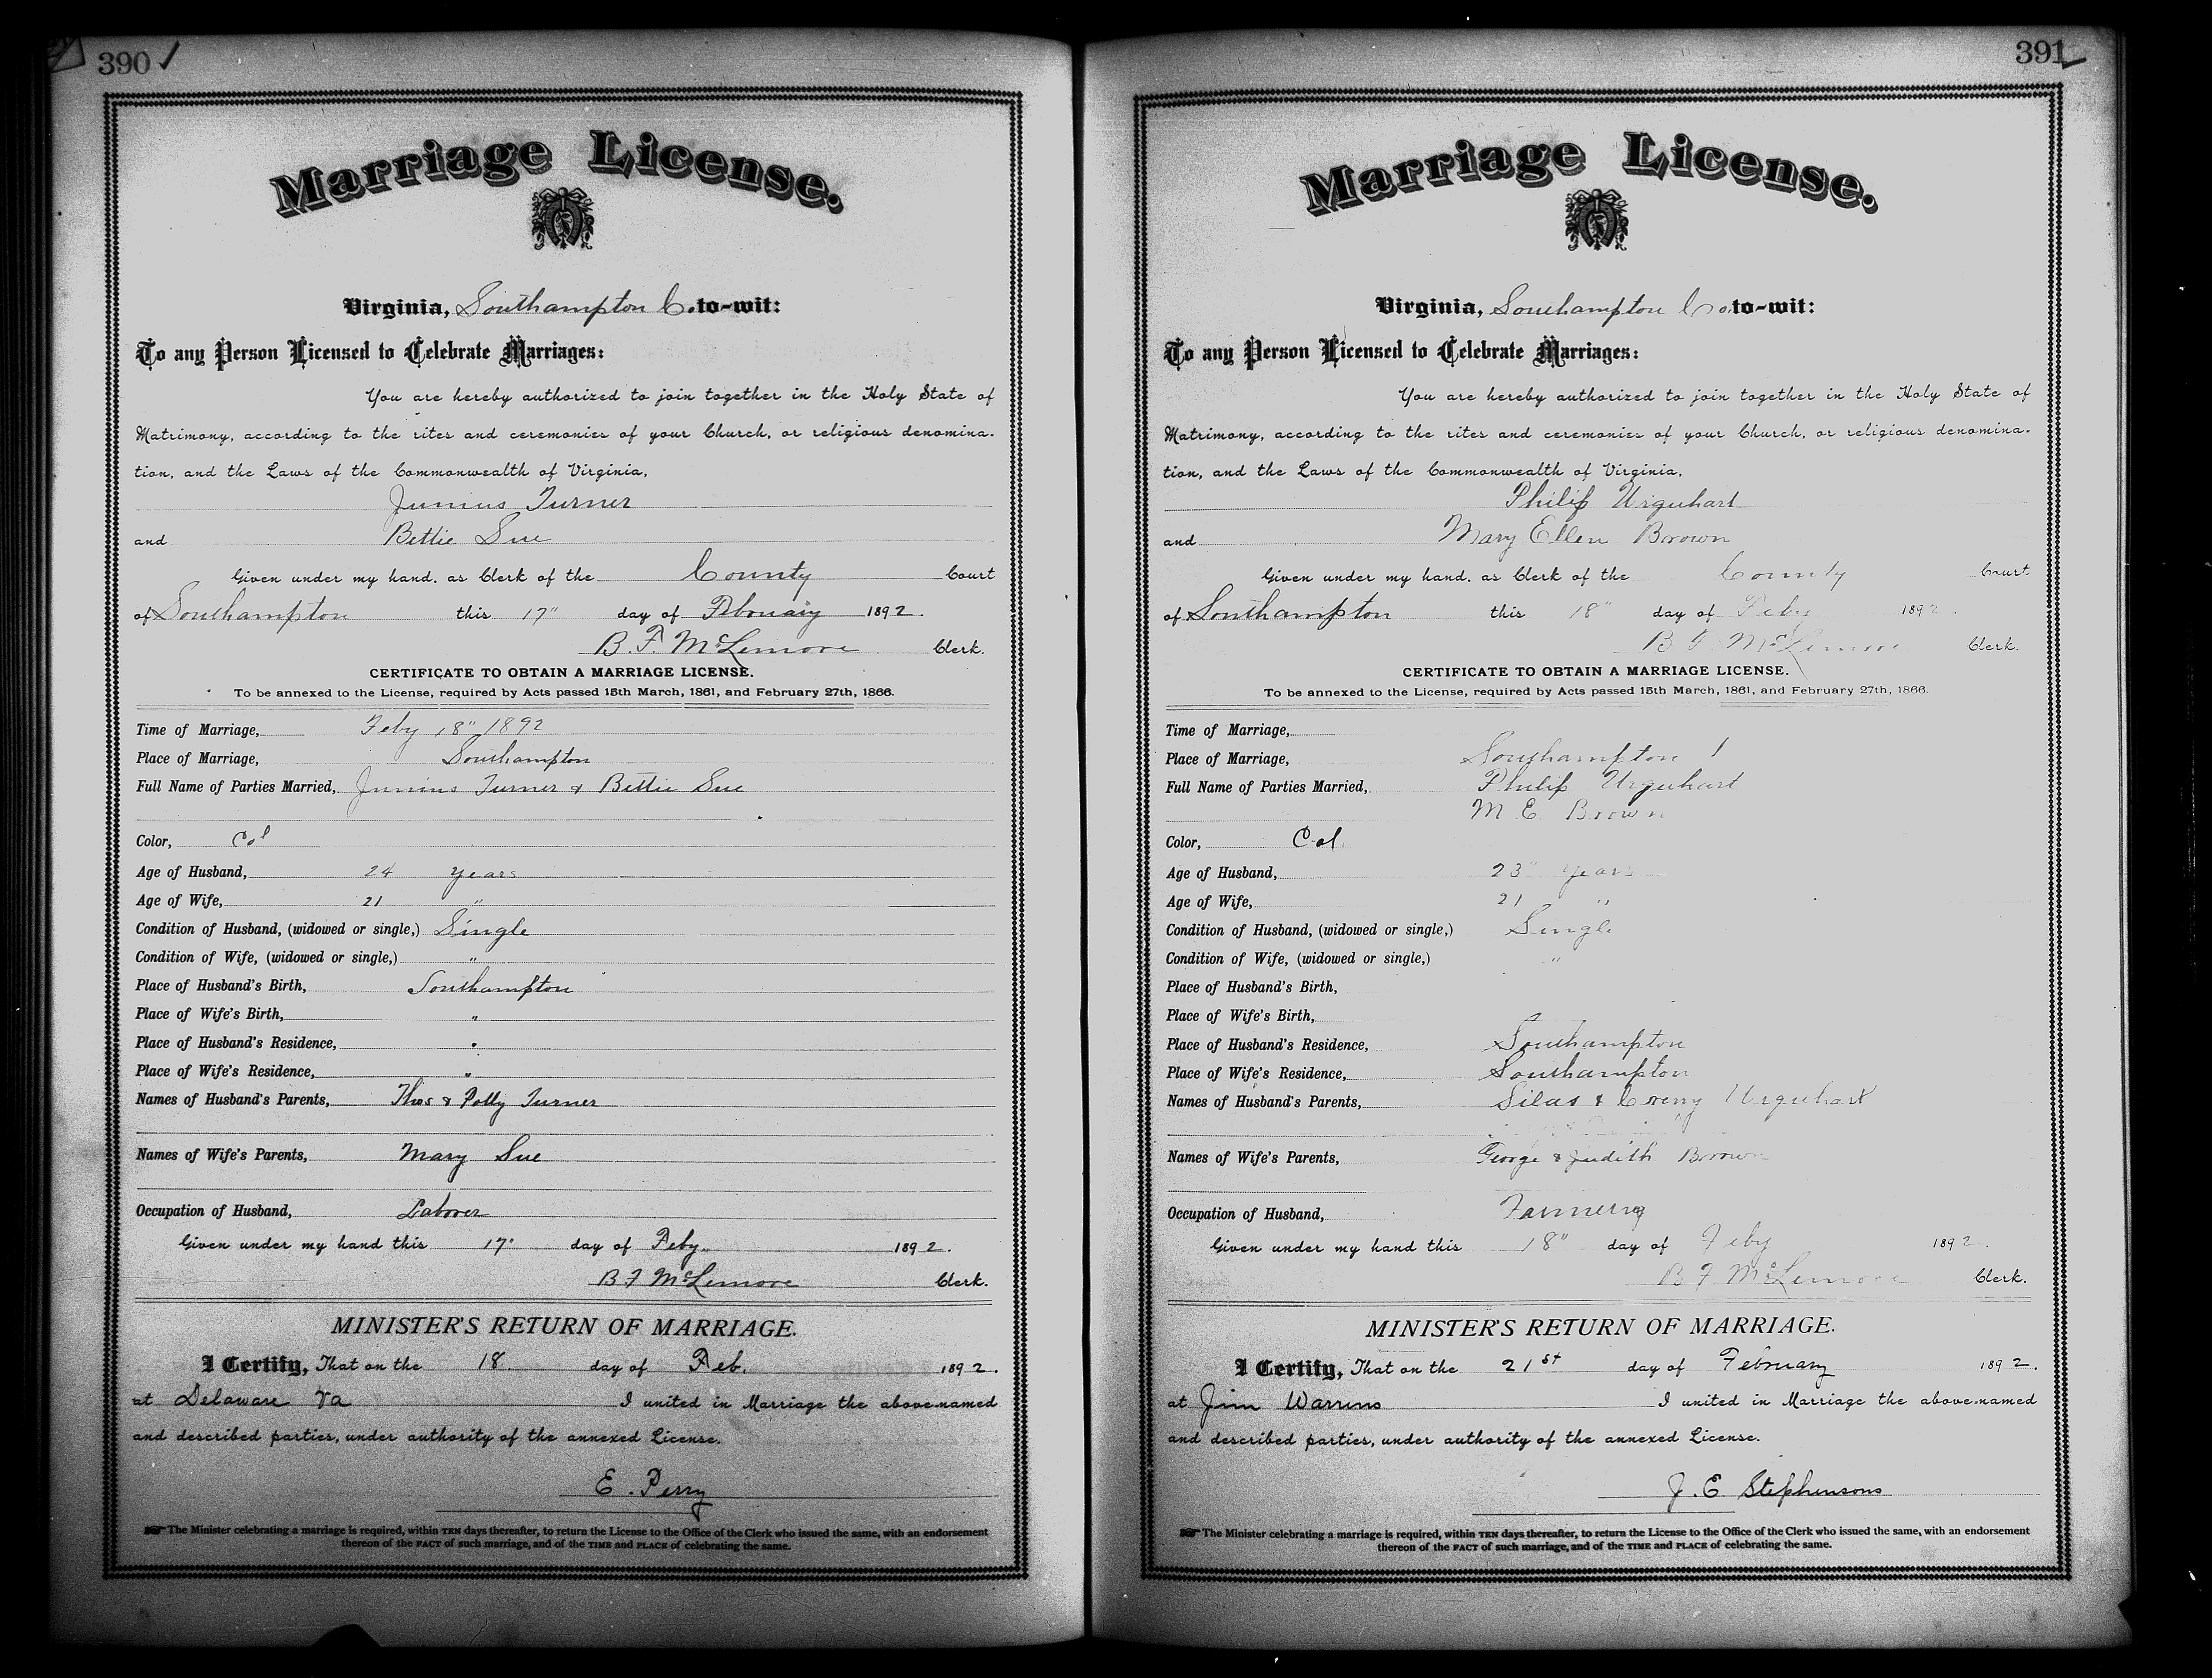 390
Marriage License.
Virginia, Southampton Co. to-wit:
To any Person Licensed to Celebrate Marriages:
You are hereby authorized to join together in the Holy State of
Matrimony, according to the rites and ceremonies of your Church, or religious denomina-
tion, and the Laws of the Commonwealth of Virginia,
Junius Turner
and Bettie Sue
Given under my hand, as Clerk of the County Court
of Southampton this 17" day of February 1892.
B. F. McLemore Clerk.
CERTIFICATE TO OBTAIN A MARRIAGE LICENSE.
To be annexed to the License, required by Acts passed 15th March, 1861, and February 27th, 1866.
Time of Marriage, Feby 18" 1892
Place of Marriage, Southampton
Full Name of Parties Married, Junius Turner & Bettie Sue
Color, Col
Age of Husband, 24 years
Age of Wife, 21 "
Condition of Husband, (widowed or single,) Single
Condition of Wife, (widowed or single,) "
Place of Husband's Birth, Southampton
Place of Wife's Birth, "
Place of Husband's Residence, "
Place of Wife's Residence, "
Names of Husband's Parents, Thos & Polly Turner
Names of Wife's Parents, Mary Sue
Occupation of Husband, Laborer
Given under my hand this 17" day of Feby. 1892.
B F McLemore Clerk.
MINISTER'S RETURN OF MARRIAGE.
I Certify, That on the 18 day of Feb. 1892.
at Delaware Va I united in Marriage the above-named
and described parties, under authority of the annexed License.
E. Perry
The Minister celebrating a marriage is required, within TEN days thereafter, to return the License to the Office of the Clerk who issued the same, with an endorsement
thereon of the FACT of such marriage, and of the TIME and PLACE of celebrating the same.
391
Marriage License.
Virginia, Southampton Co. to-wit:
To any Person Licensed to Celebrate Marriages:
You are hereby authorized to join together in the Holy State of
Matrimony, according to the rites and ceremonies of your Church, or religious denomina-
tion, and the Laws of the Commonwealth of Virginia,
Philip Urquhart
and Mary Ellen Brown
Given under my hand, as Clerk of the County Court
of Southampton this 18" day of Feby 1892.
B F McLemore Clerk.
CERTIFICATE TO OBTAIN A MARRIAGE LICENSE.
To be annexed to the License, required by Acts passed 15th March, 1861, and February 27th, 1866.
Time of Marriage,
Place of Marriage, Southampton
Full Name of Parties Married, Philip Urquhart
M E Brown
Color, Col
Age of Husband, 23" years
Age of Wife, 21 "
Condition of Husband, (widowed or single,) Single
Condition of Wife, (widowed or single,) "
Place of Husband's Birth,
Place of Wife's Birth,
Place of Husband's Residence, Southampton
Place of Wife's Residence, Southampton
Names of Husband's Parents, Silas & Creny Urquhart
Names of Wife's Parents, George & Judith Brown
Occupation of Husband, Farmerng
Given under my hand this 18" day of Feby 1892.
B F McLemore Clerk.
MINISTER'S RETURN OF MARRIAGE.
I Certify, That on the 21st day of February 1892.
at Jim Warrens I united in Marriage the above-named
and described parties, under authority of the annexed License.
J. E. Stephensons
The Minister celebrating a marriage is required, within TEN days thereafter, to return the License to the Office of the Clerk who issued the same, with an endorsement
thereon of the FACT of such marriage, and of the TIME and PLACE of celebrating the same.